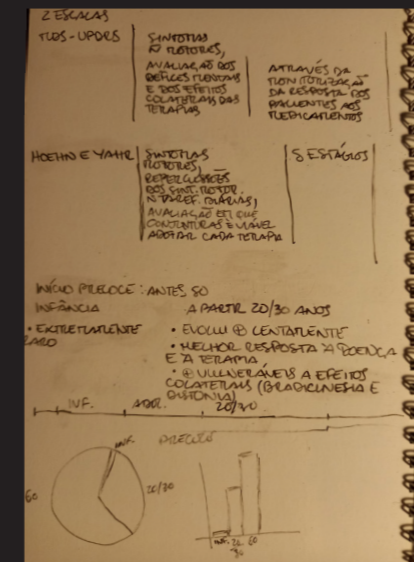 2 ESCALAS
SINTOMAS
Ñ MOTORES,
AVALIAÇÃO DOS
DÉFICES MENTAIS
E DOS EFEITOS
COLATERAIS DAS
TERAPIAS
ATRAVÉS DA
MONITORIZAÇÃO
DA RESPOSTA DOS
PACIENTES AOS
MEDICAMENTOS
HOEHN E YAHR
SINTOMAS
MOTORES,
REPERCUSSÕES
DOS SINT. MOTOR.
N TAREF. DIÁRIAS,
AVALIAÇÃO EM QUE
CONJUNTURAS É VIÁVEL
ADOTAR CADA TERAPIA
5 ESTÁGIOS
INÍCIO PRECOCE: ANTES 50
INFÂNCIA
• EXTREMAMENTE
RARO
A PARTIR 20/30 ANOS
• EVOLUI ⊕ LENTAMENTE
• MELHOR RESPOSTA À DOENÇA
E À TERAPIA,
• ⊕ VULNERÁVEIS A EFEITOS
COLATERAIS (BRADICINESIA E
DISTONIA)
INF.
20/30
INF.
60
20/30
INF. 60